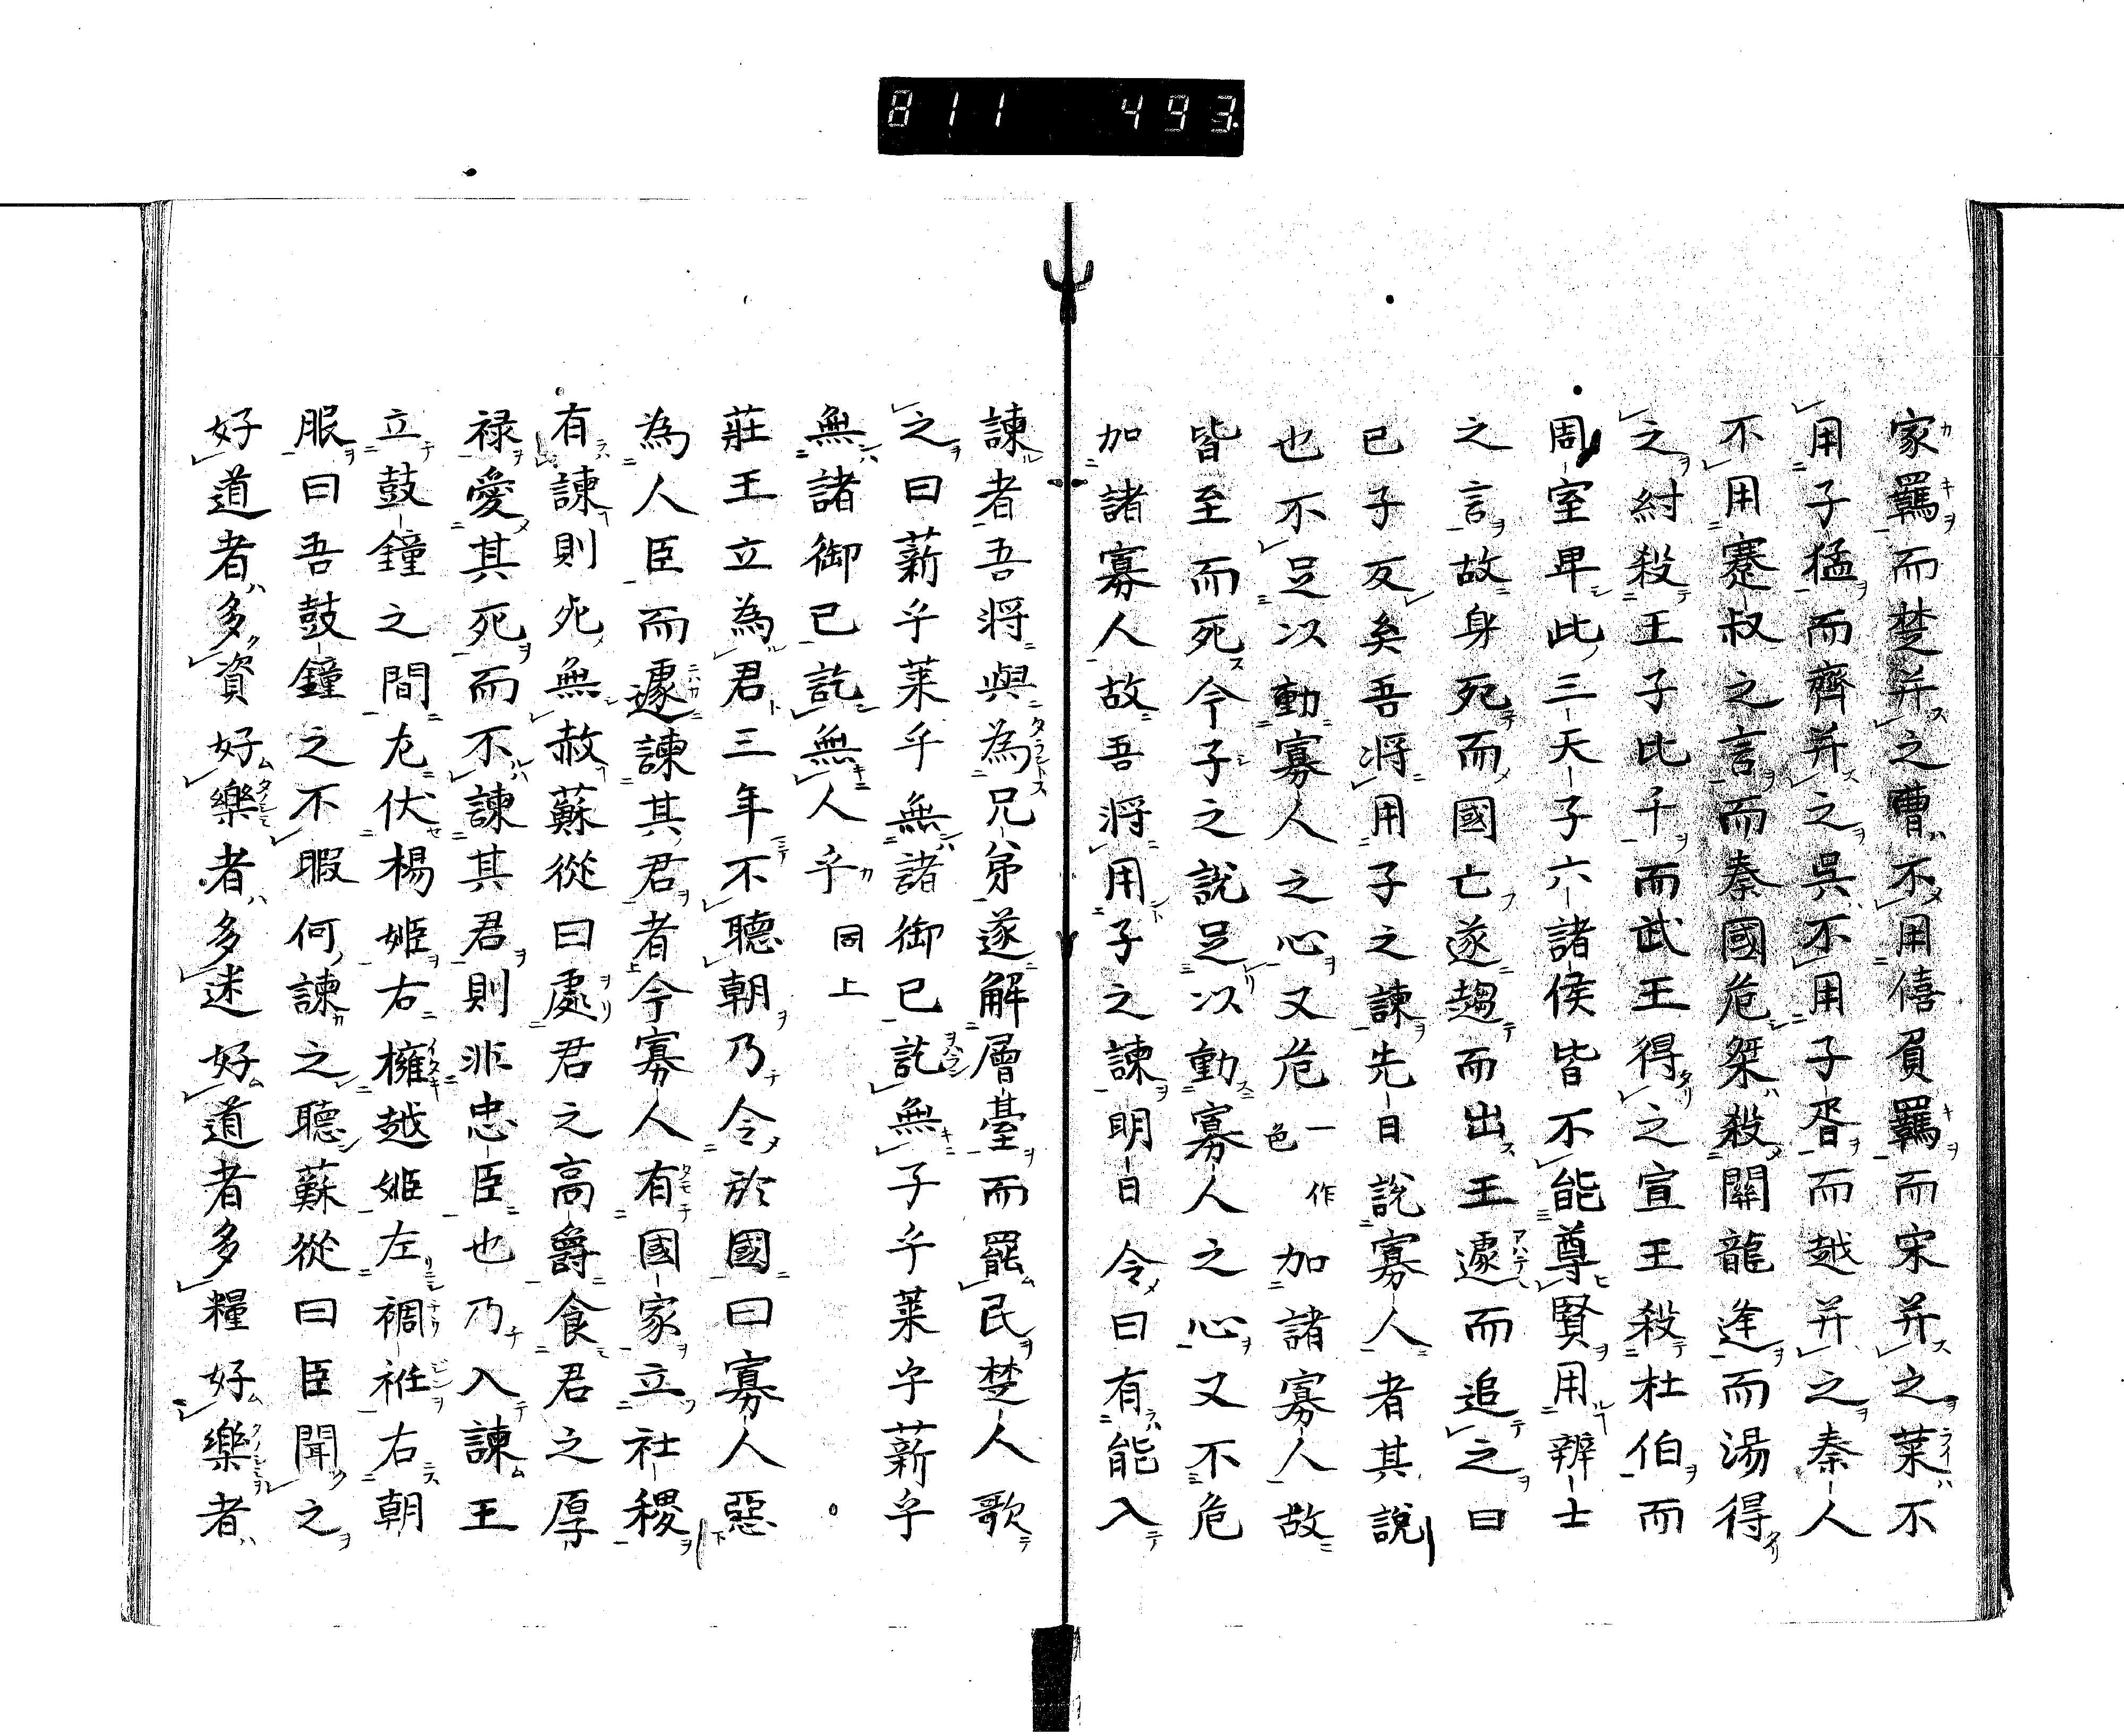 811 493.
家羈而楚并之曹不用僖負羈而宋并之萊不
用子猛而齊并之吳不用子胥而越并之秦人
不用蹇叔之言而秦國危桀殺關龍逄而湯得
之紂殺王子比干而武王得之宣王殺杜伯而
周室卑此三天子六諸侯皆不能尊賢用辨士
之言故身死而國亡遂趨而出王遽而追之曰
已子反矣吾将用子之諫先日說寡人者其說
也不足以動寡人之心又危一作色加諸寡人故
皆至而死今子之說足以動寡人之心又不危
加諸寡人故吾将用子之諫明日令曰有能入
諫者吾将與為兄弟遂解層臺而罷民楚人歌
之曰薪乎萊乎無諸御已訖無子乎萊乎薪乎
無諸御已訖無人乎 同上
莊王立為君三年不聽朝乃令於國曰寡人惡
為人臣而遽諫其君者今寡人有國家立社稷
有諫則死無赦蘇從曰處君之高爵食君之厚
禄愛其死而不諫其君則非忠臣也乃入諫王
立鼓鐘之間左伏楊姬右擁越姬左裯衽右朝
服曰吾鼓鐘之不暇何諫之聽蘇從曰臣聞之
好道者多資好樂者多迷好道者多糧好樂者